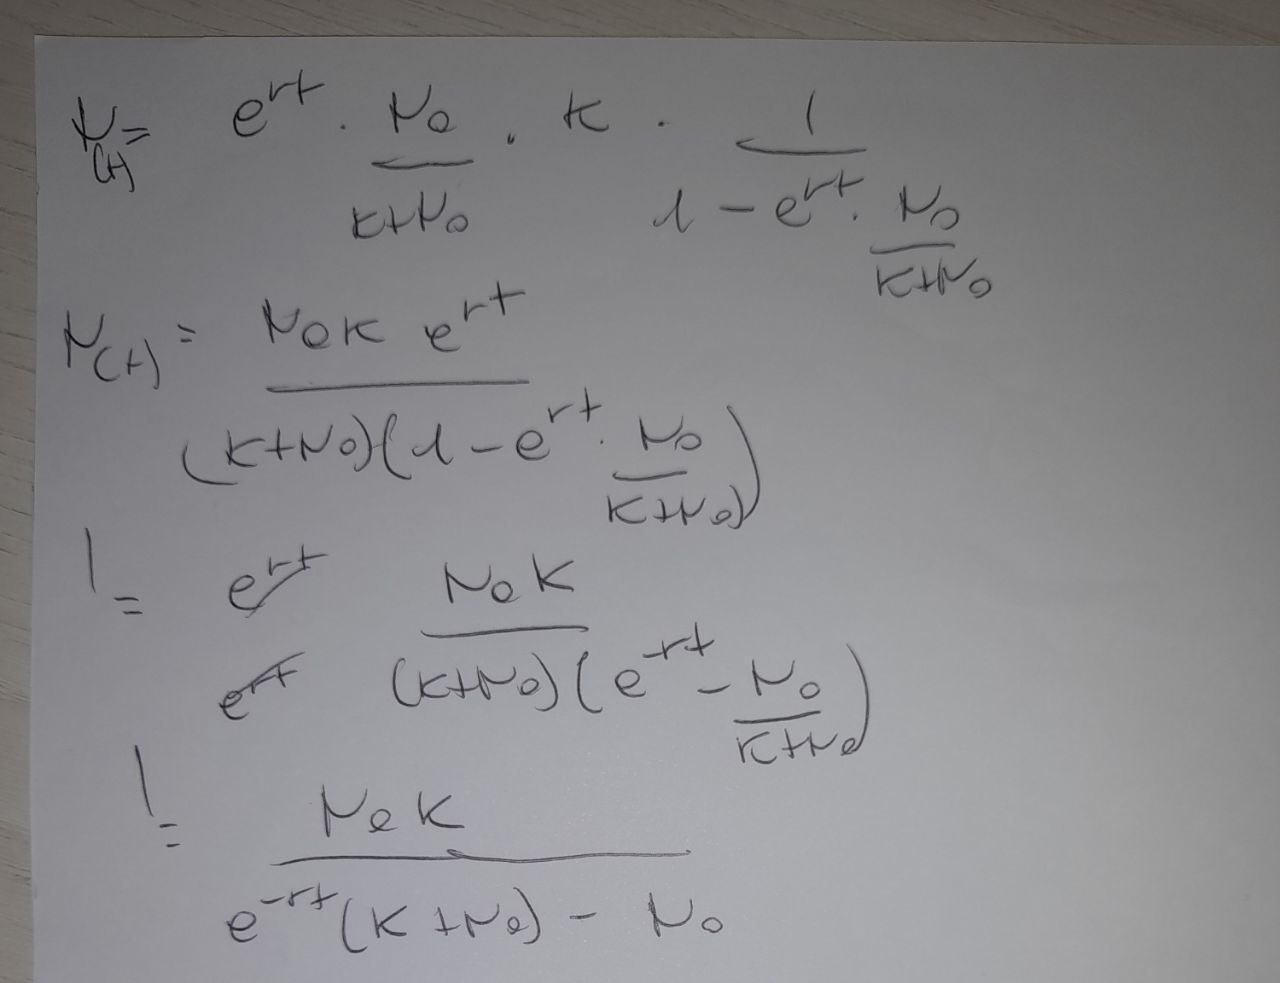 N(t) = e^rt · N0/(K+N0) · K · 1/(1 - e^rt · N0/(K+N0))
N(t) = N0K e^rt/((K+N0)(1 - e^rt · N0/(K+N0)))
| = e^rt/e^rt N0K/((K+N0)(e^-rt - N0/(K+N0)))
| = N0K/(e^-rt(K+N0) - N0)